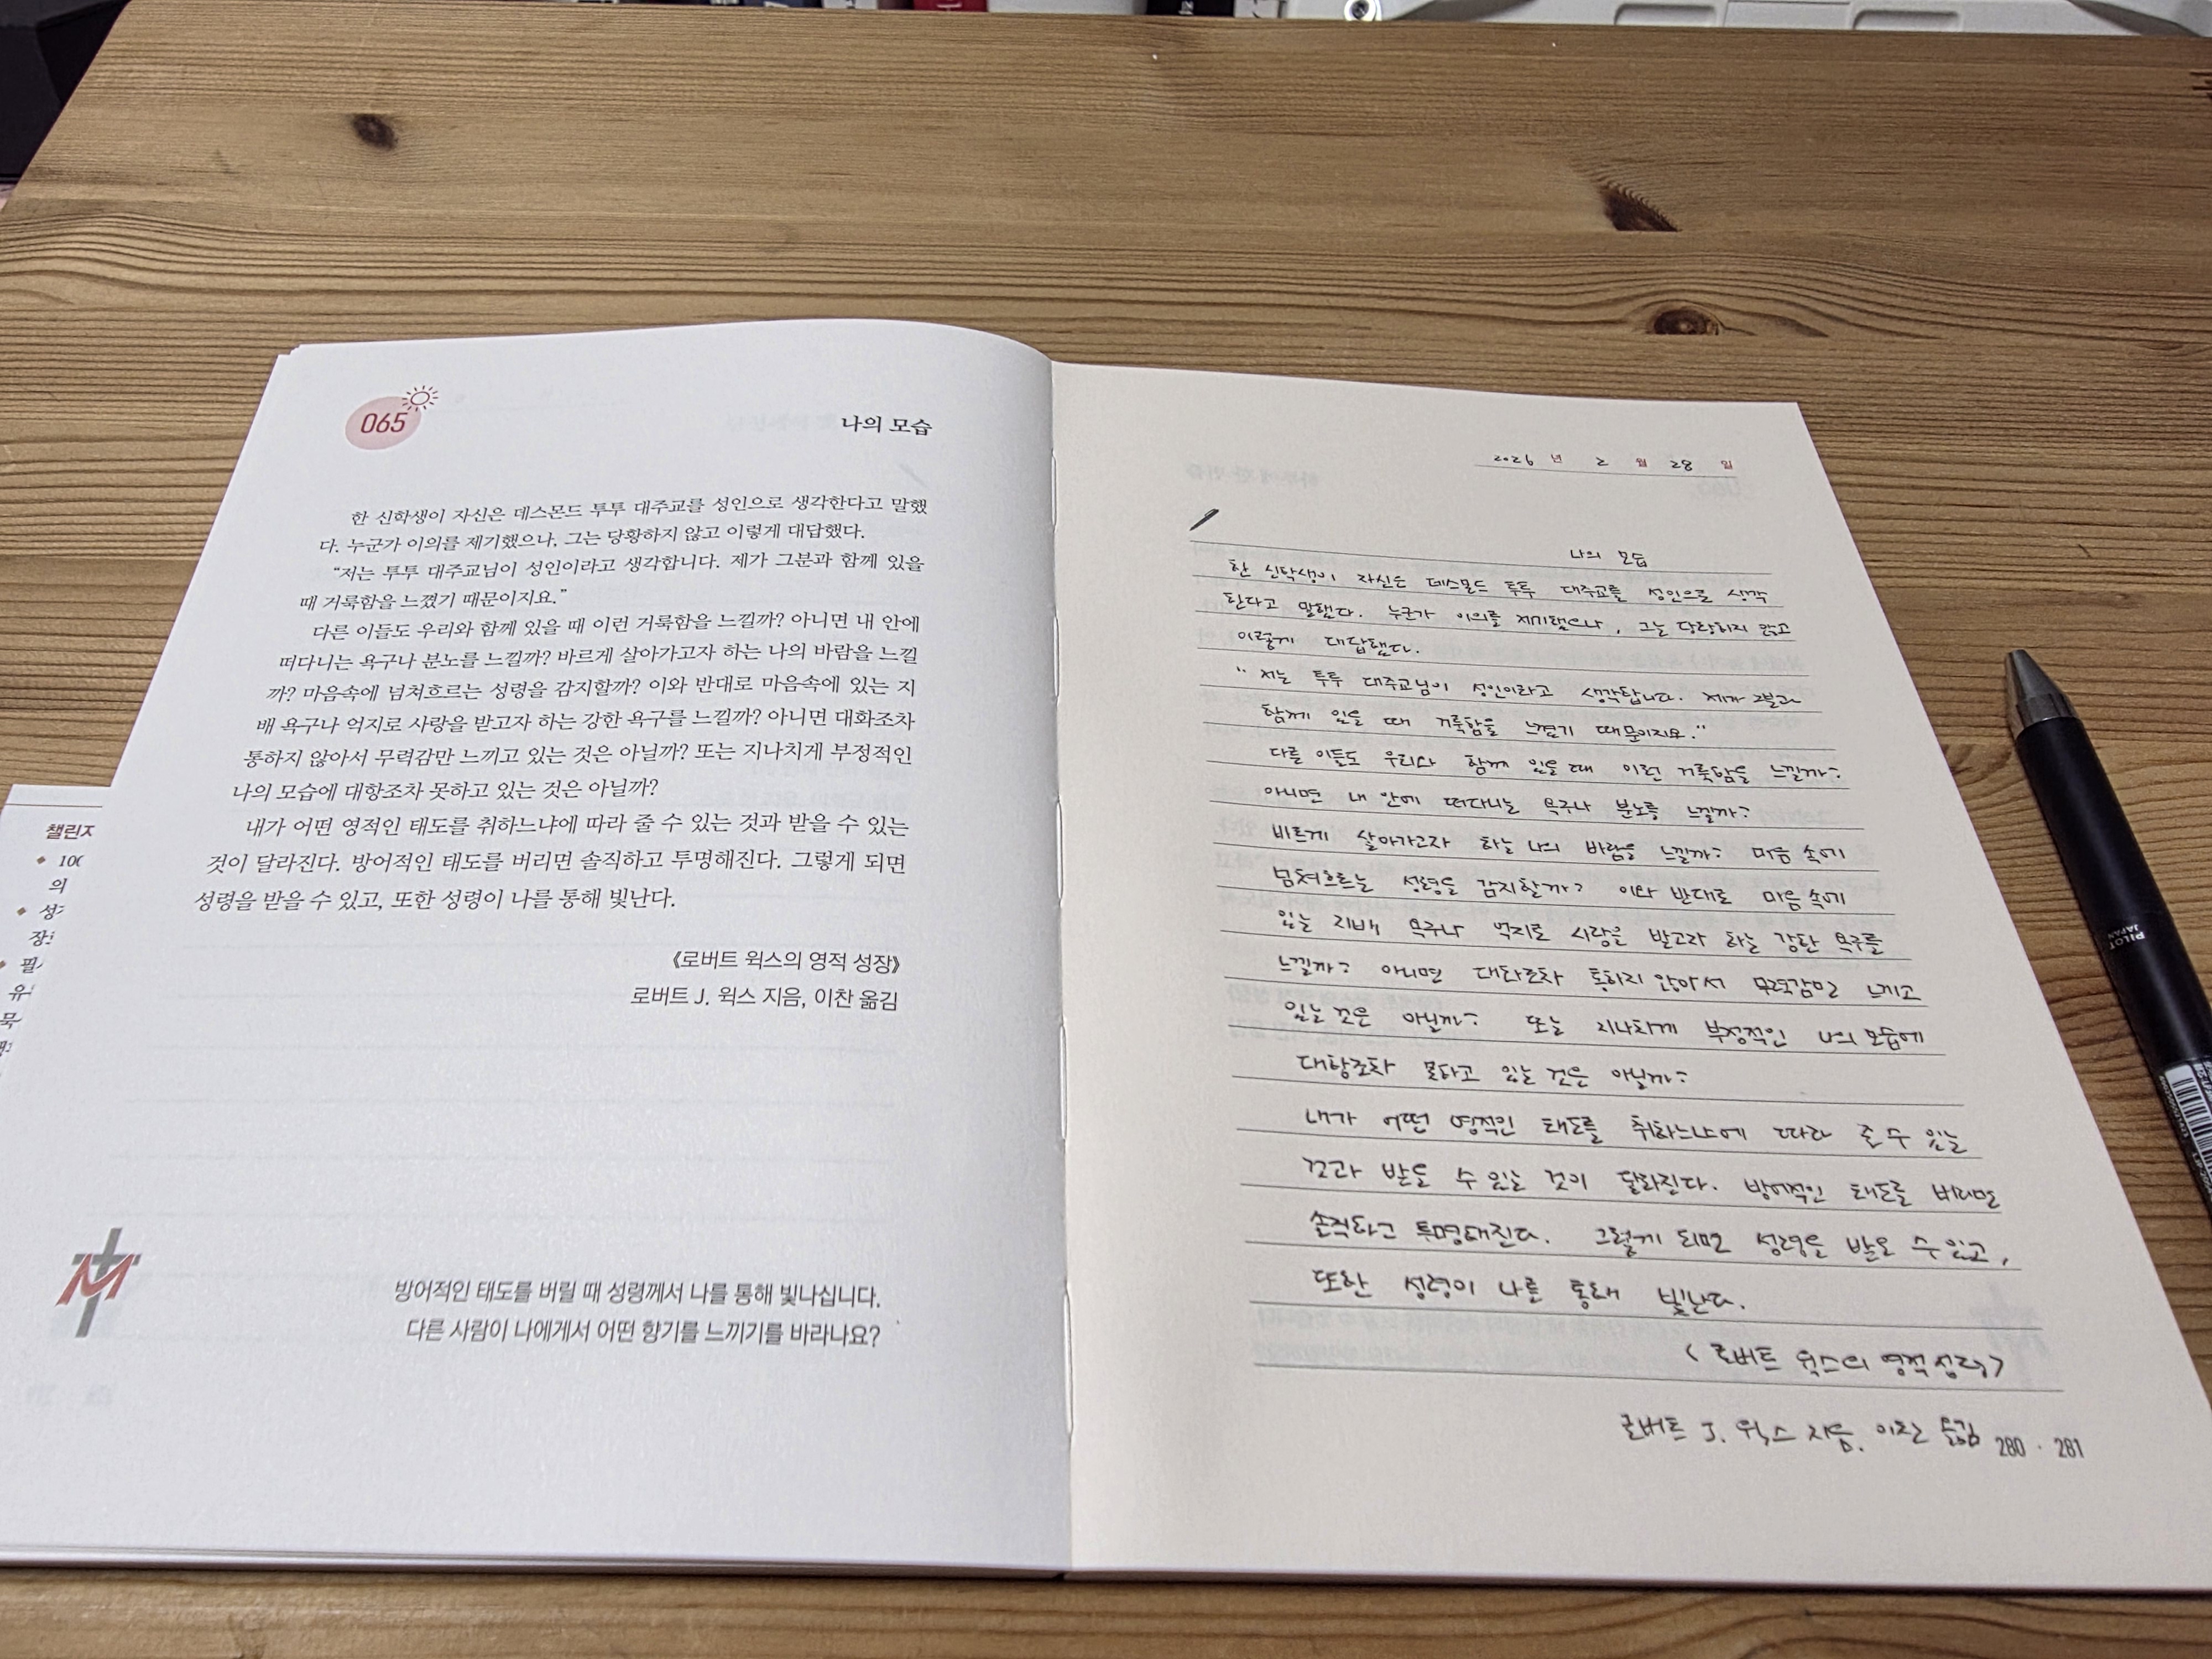 065
나의 모습
한 신학생이 자신은 데스몬드 투투 대주교를 성인으로 생각한다고 말했
다. 누군가 이의를 제기했으나, 그는 당황하지 않고 이렇게 대답했다.
“저는 투투 대주교님이 성인이라고 생각합니다. 제가 그분과 함께 있을
때 거룩함을 느꼈기 때문이지요.”
다른 이들도 우리와 함께 있을 때 이런 거룩함을 느낄까? 아니면 내 안에
떠다니는 욕구나 분노를 느낄까? 바르게 살아가고자 하는 나의 바람을 느낄
까? 마음속에 넘쳐흐르는 성령을 감지할까? 이와 반대로 마음속에 있는 지
배 욕구나 억지로 사랑을 받고자 하는 강한 욕구를 느낄까? 아니면 대화조차
통하지 않아서 무력감만 느끼고 있는 것은 아닐까? 또는 지나치게 부정적인
나의 모습에 대항조차 못하고 있는 것은 아닐까?
내가 어떤 영적인 태도를 취하느냐에 따라 줄 수 있는 것과 받을 수 있는
것이 달라진다. 방어적인 태도를 버리면 솔직하고 투명해진다. 그렇게 되면
성령을 받을 수 있고, 또한 성령이 나를 통해 빛난다.
《로버트 윅스의 영적 성장》
로버트 J. 윅스 지음, 이찬 옮김
M
방어적인 태도를 버릴 때 성령께서 나를 통해 빛나십니다.
다른 사람이 나에게서 어떤 향기를 느끼기를 바라나요?
챌린지
의
2026 년 2 월 28 일
나의 모습
한 신학생이 자신은 데스몬드 투투 대주교를 성인으로 생각
한다고 말했다. 누군가 이의를 제기했으나, 그는 당황하지 않고
이렇게 대답했다.
“저는 투투 대주교님이 성인이라고 생각합니다. 제가 그분과
함께 있을 때 거룩함을 느꼈기 때문이지요.”
다른 이들도 우리와 함께 있을 때 이런 거룩함을 느낄까?
아니면 내 안에 떠다니는 욕구나 분노를 느낄까?
바르게 살아가고자 하는 나의 바람을 느낄까? 마음 속에
넘쳐흐르는 성령을 감지할까? 이와 반대로 마음 속에
있는 지배 욕구나 억지로 사랑을 받고자 하는 강한 욕구를
느낄까? 아니면 대화조차 통하지 않아서 무력감만 느끼고
있는 것은 아닐까? 또는 지나치게 부정적인 나의 모습에
대항조차 못하고 있는 것은 아닐까?
내가 어떤 영적인 태도를 취하느냐에 따라 줄 수 있는
것과 받을 수 있는 것이 달라진다. 방어적인 태도를 버리면
솔직하고 투명해진다. 그렇게 되면 성령을 받을 수 있고,
또한 성령이 나를 통해 빛난다.
〈로버트 윅스의 영적 성장〉
로버트 J. 윅스 지음. 이찬 옮김
280 · 281
PILOT
JAPAN